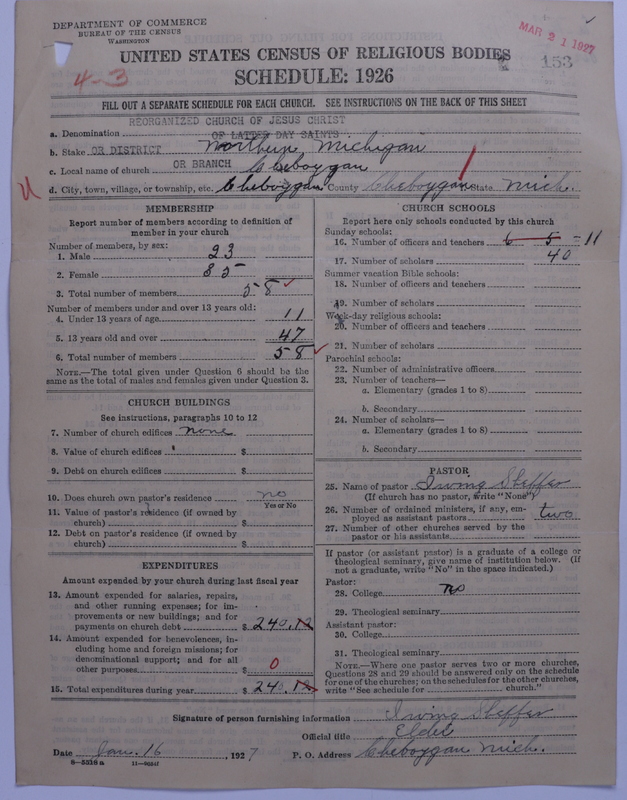 DEPARTMENT OF COMMERCE
BUREAU OF THE CENSUS
WASHINGTON
MAR 21 1927
153
4-3
UNITED STATES CENSUS OF RELIGIOUS BODIES
SCHEDULE: 1926
FILL OUT A SEPARATE SCHEDULE FOR EACH CHURCH. SEE INSTRUCTIONS ON THE BACK OF THIS SHEET
REORGANIZED CHURCH OF JESUS CHRIST
a. Denomination OF LATTER DAY SAINTS
b. Stake OR DISTRICT Northern Michigan
c. Local name of church OR BRANCH Cheboygan
d. City, town, village, or township, etc. Cheboygan County Cheboygan State Mich.
MEMBERSHIP
Report number of members according to definition of
member in your church
Number of members, by sex:
1. Male 23
2. Female 35
3. Total number of members 58
Number of members under and over 13 years old:
4. Under 13 years of age 11
5. 13 years old and over 47
6. Total number of members 58
NOTE.—The total given under Question 6 should be the
same as the total of males and females given under Question 3.
CHURCH BUILDINGS
See instructions, paragraphs 10 to 12
7. Number of church edifices none
8. Value of church edifices $
9. Debt on church edifices $
10. Does church own pastor's residence no
Yes or No
11. Value of pastor's residence (if owned by
church) $
12. Debt on pastor's residence (if owned by
church) $
EXPENDITURES
Amount expended by your church during last fiscal year
13. Amount expended for salaries, repairs,
and other running expenses; for im-
provements or new buildings; and for
payments on church debt $ 240.12
14. Amount expended for benevolences, in-
cluding home and foreign missions; for
denominational support; and for all
other purposes $ 0
15. Total expenditures during year $ 240.12
CHURCH SCHOOLS
Report here only schools conducted by this church
Sunday schools:
16. Number of officers and teachers 6 5 =11
17. Number of scholars 40
Summer vacation Bible schools:
18. Number of officers and teachers
19. Number of scholars
Week-day religious schools:
20. Number of officers and teachers
21. Number of scholars
Parochial schools:
22. Number of administrative officers
23. Number of teachers—
a. Elementary (grades 1 to 8)
b. Secondary
24. Number of scholars—
a. Elementary (grades 1 to 8)
b. Secondary
PASTOR
25. Name of pastor Irving Sheffer
(If church has no pastor, write "None")
26. Number of ordained ministers, if any, em-
ployed as assistant pastors two
27. Number of other churches served by the
pastor or his assistants
If pastor (or assistant pastor) is a graduate of a college or
theological seminary, give name of institution below. (If
not a graduate, write "No" in the space indicated.)
Pastor:
28. College no
29. Theological seminary
Assistant pastor:
30. College
31. Theological seminary
NOTE.—Where one pastor serves two or more churches,
Questions 28 and 29 should be answered only on the schedule
for one of the churches; on the schedules for the other churches,
write "See schedule for church."
Signature of person furnishing information Irving Sheffer
Official title Elder
Date Jan. 16, 1927 P. O. Address Cheboygan Mich.
8-5518 a